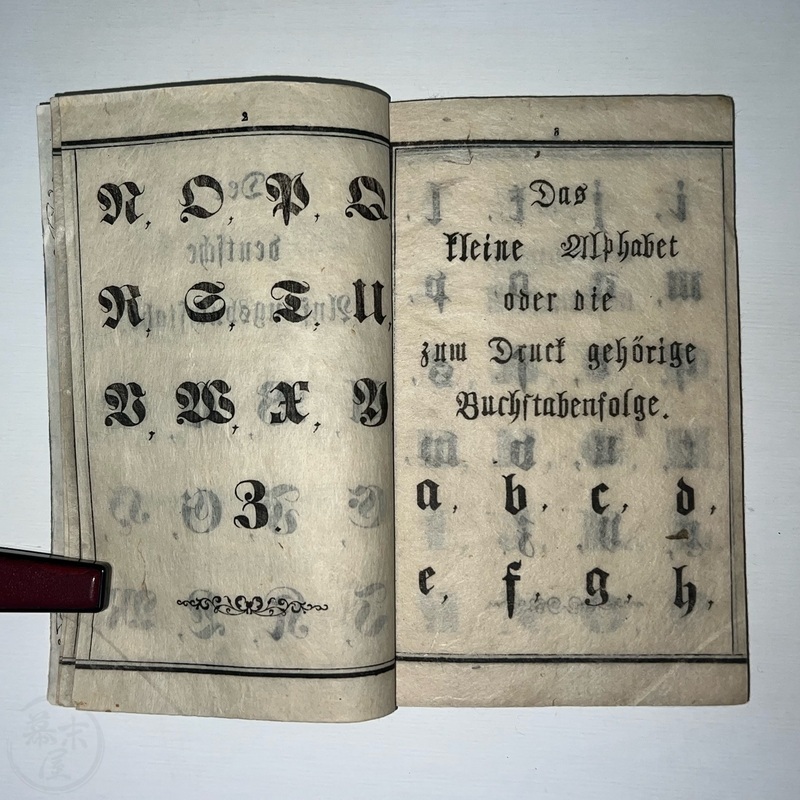 2
N, O, P, Q
R, S, T, U,
V, W, X, Y
Z.
3
Das
kleine Alphabet
oder die
zum Druck gehörige
Buchſtabenfolge.
a, b, c, d,
e, f, g, h,